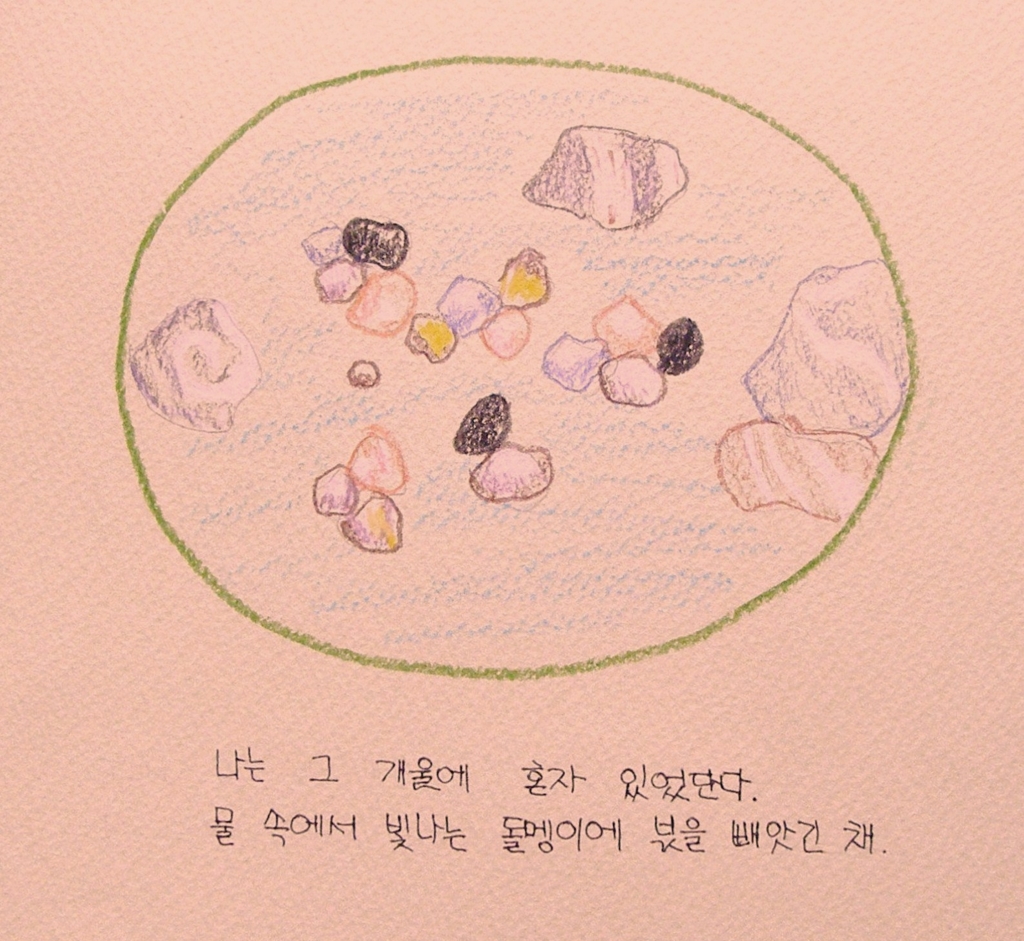 나는 그 개울에 혼자 있었단다.
물 속에서 빛나는 돌멩이에 넋을 빼앗긴 채.